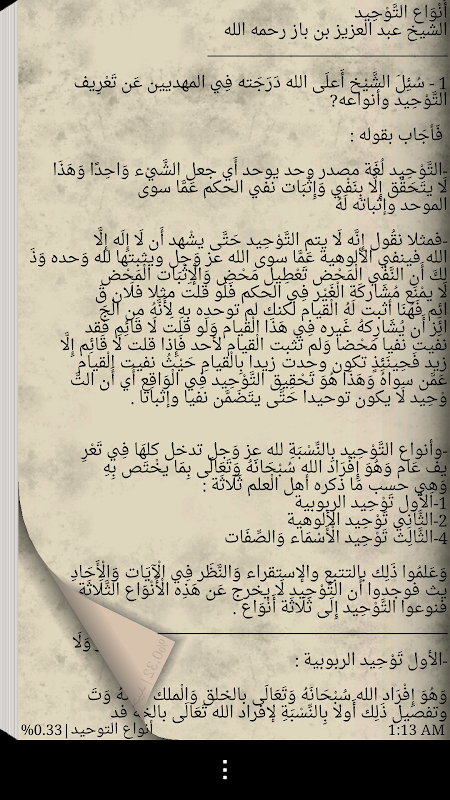 أَنْوَاع التَّوْحِيد
الشيخ عبد العزيز بن باز رحمه الله
1 - سُئِلَ الشَّيْخ أَعلَى الله دَرَجَته فِي المهديين عَن تَعْرِيف
التَّوْحِيد وأنواعه؟
فَأجَاب بقوله :
-التَّوْحِيد لُغَة مصدر وحد يوحد أَي جعل الشَّيْء وَاحِدًا وَهَذَا
لَا يتَحَقَّق إِلَّا بِنَفْي وَإِثْبَات نفي الحكم عَمَّا سوى
الموحد وإثباته لَهُ
-فمثلا نقُول إِنَّه لَا يتم التَّوْحِيد حَتَّى يشْهد أَن لَا إِلَه إِلَّا
الله فينفي الألوهية عَمَّا سوى الله عز وَجل ويثبتها لله وَحده وَذَ
لِكَ أَن النَّفْي الْمَحْض تَعْطِيل مَحْض وَالْإِثْبَات الْمَحْض
لَا يمْنَع مُشَاركَة الْغَيْر فِي الحكم فَلَو قلت مثلا فلَان قَ
ائِم فَهُنَا أثبت لَهُ الْقيام لكنك لم توحده بِهِ لِأَنَّهُ من الْجَ
ائِز أَن يُشَارِكهُ غَيره فِي هَذَا الْقيام وَلَو قلت لَا قَائِم فقد
نفيت نفيا مَحْضا وَلم تثبت الْقيام لأحد فَإِذا قلت لَا قَائِم إِلَّا
زيد فَحِينَئِذٍ تكون وحدت زيدا بِالْقيامِ حَيْثُ نفيت الْقيام
عَمَّن سواهُ وَهَذَا هُوَ تَحْقِيق التَّوْحِيد فِي الْوَاقِع أَي أَن التَّ
وْحِيد لَا يكون توحيدا حَتَّى يتَضَمَّن نفيا وإثباتا .
-وأنواع التَّوْحِيد بالنِّسْبَةِ لله عز وَجل تدخل كلهَا فِي تَعْرِ
يف عَام وَهُوَ إِفْرَاد الله سُبْحَانَهُ وَتَعَالَى بِمَا يخْتَص بِهِ
وَهِي حسب مَا ذكره أهل الْعلم ثَلَاثَة :
1-الأول تَوْحِيد الربوبية
2-الثَّانِي تَوْحِيد الألوهية
4-الثَّالِث تَوْحِيد الْأَسْمَاء وَالصِّفَات
وَعَلمُوا ذَلِك بالتتبع والإستقراء وَالنَّظَر فِي الْآيَات وَالْأَحَادِ
يث فوجدوا أَن التَّوْحِيد لَا يخرج عَن هَذِه الْأَنْوَاع الثَّلَاثَة
فنوعوا التَّوْحِيد إِلَى ثَلَاثَة أَنْوَاع .
وَلَا
-الأول تَوْحِيد الربوبية :
وَهُوَ إِفْرَاد الله سُبْحَانَهُ وَتَعَالَى بالخلق وَالْملك وَتَ
وتفصيل ذَلِك أَولا بالنِّسْبَةِ لإفراد الله تَعَالَى قد
1:13 AM أنواع التوحيد|0.33%